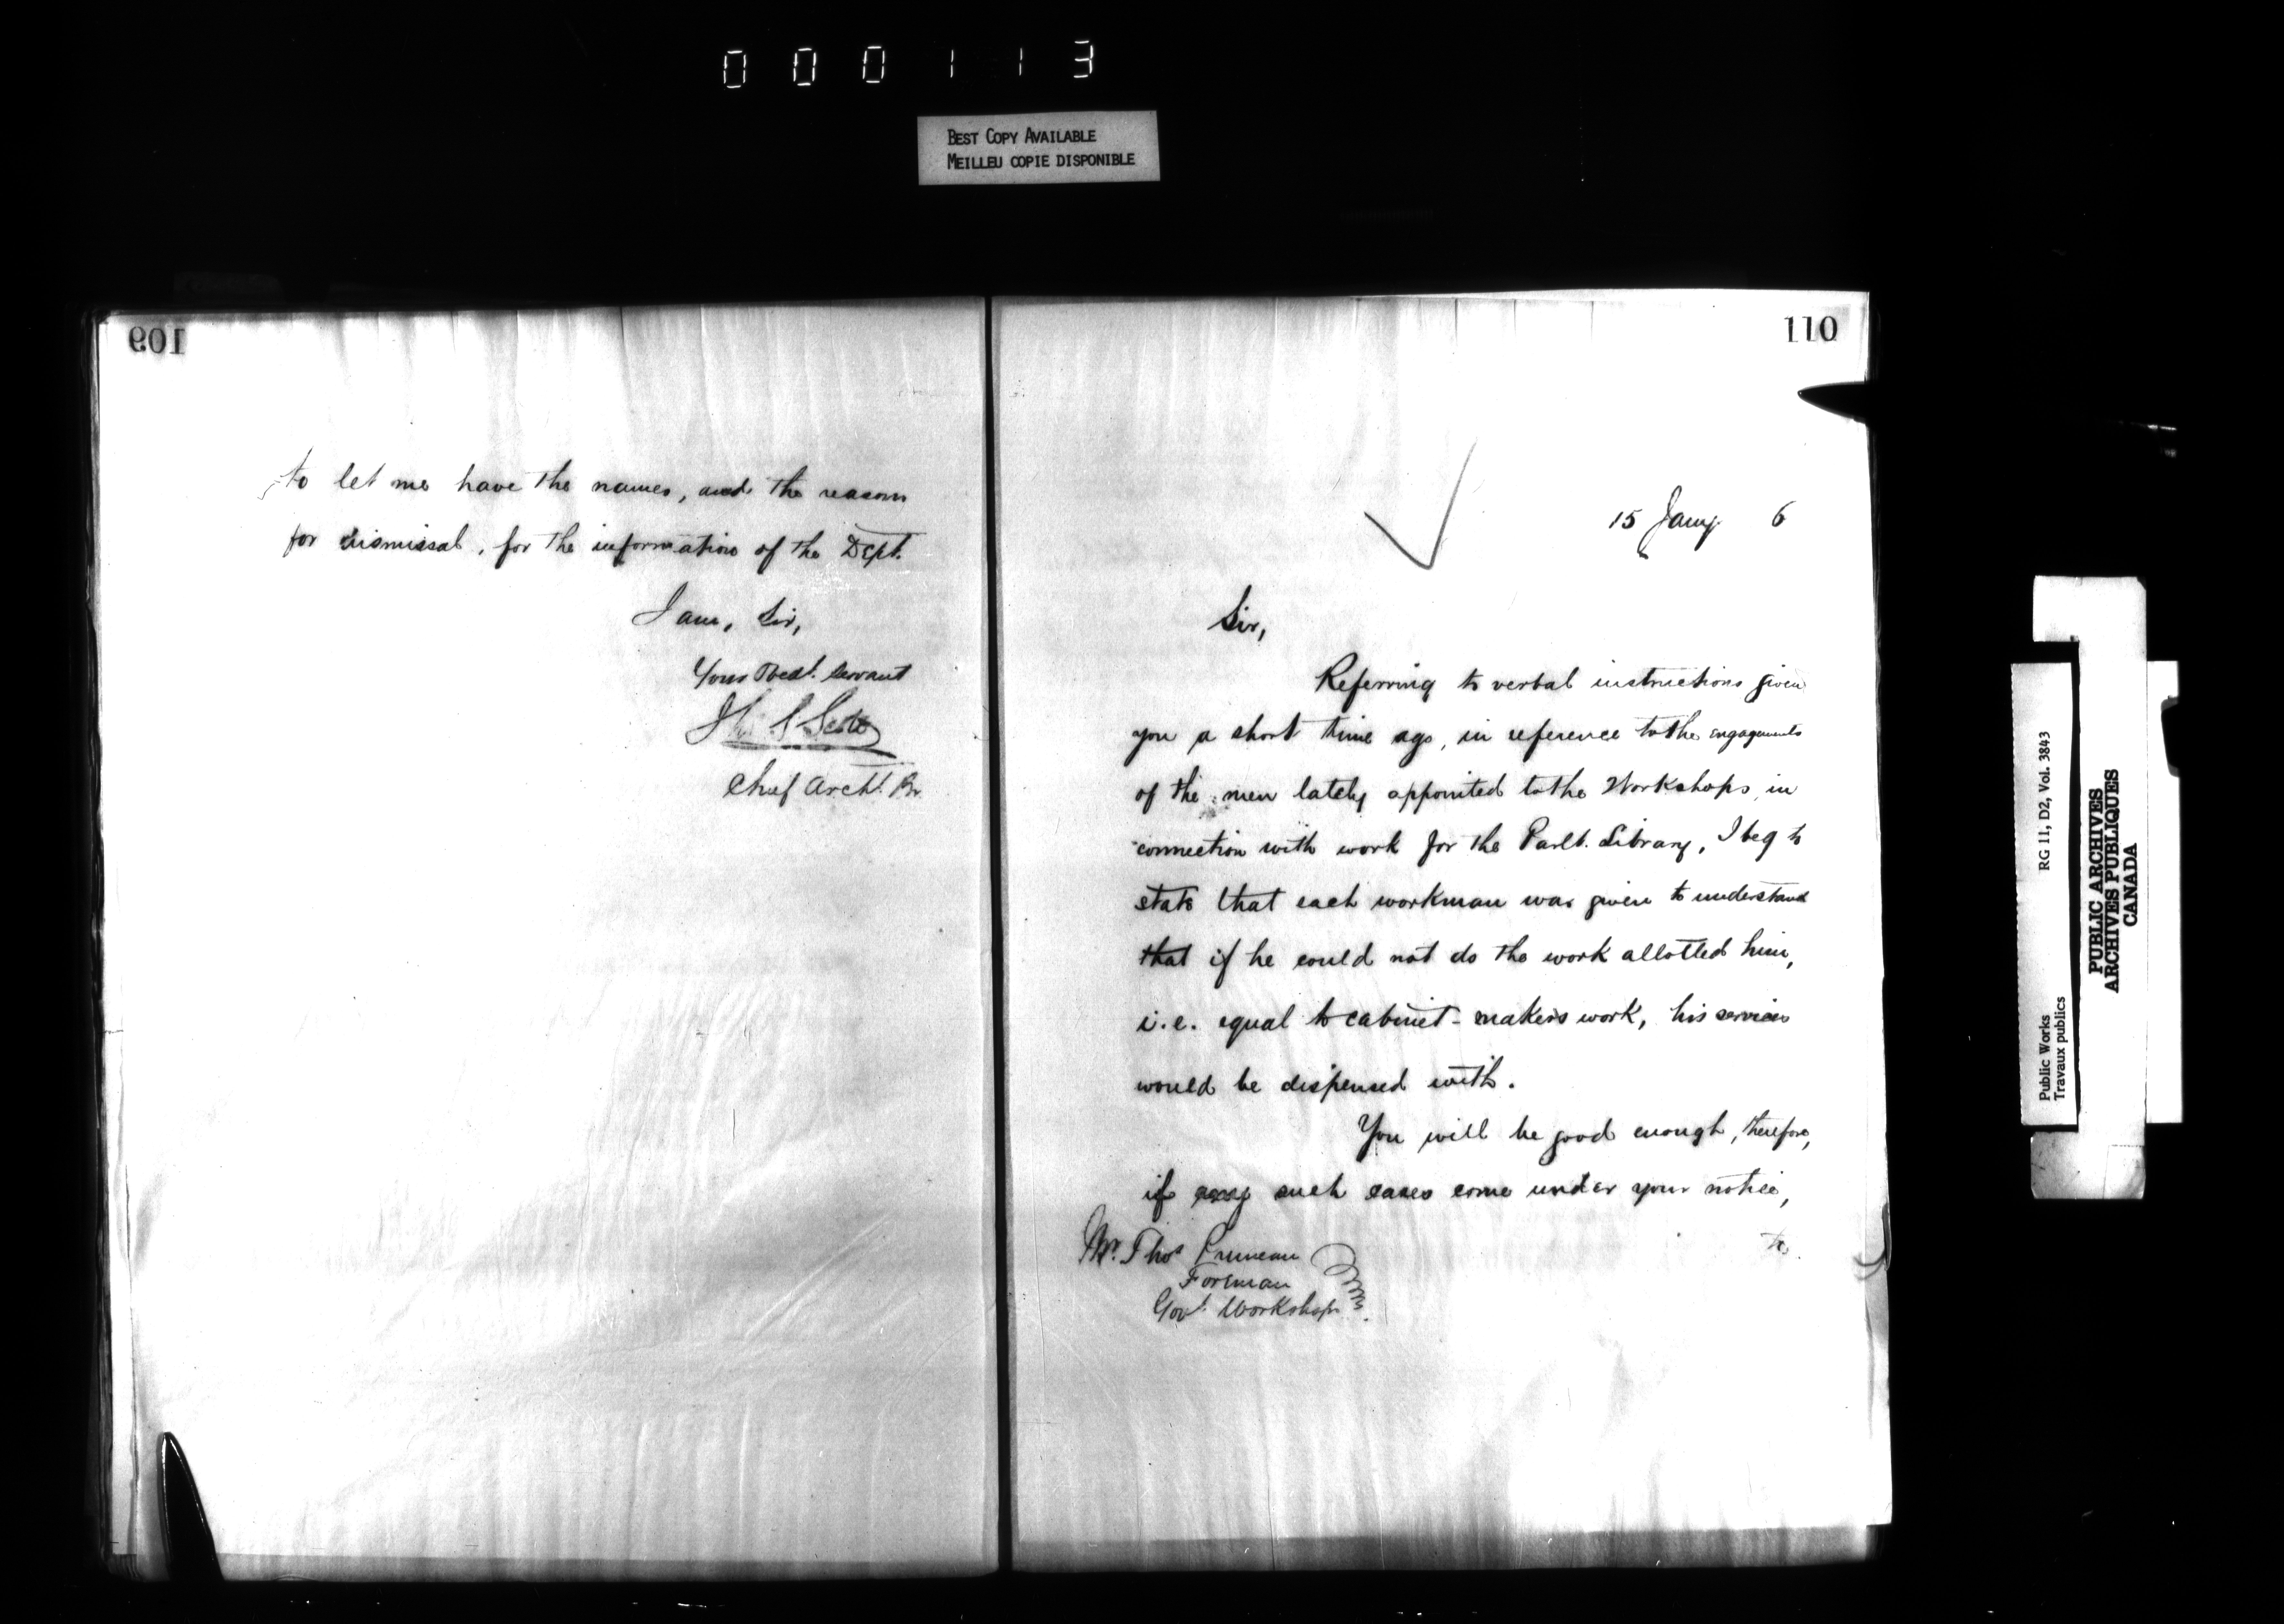 000113
BEST COPY AVAILABLE
MEILLEU COPIE DISPONIBLE
109
to let me have the names, and the reasons
for dismissal, for the information of the Dept.
I am, Sir,
Your Obedt. Servant
Thos S Scott
Chief Archt. Br.
110
15 Jany 6
Sir,
Referring to verbal instructions given
you a short time ago, in reference to the engagements
of the men lately appointed to the Workshops, in
connection with work for the Parlt. Library, I beg to
state that each workman was given to understand
that if he could not do the work allotted him,
i.e. equal to cabinet-makers work, his services
would be dispensed with.
You will be good enough, therefore,
if any such cases come under your notice,
to
Mr. Thos Pruneau
Foreman
Govt. Workshops.
Public Works RG 11, D2, Vol. 3843
Travaux publics
PUBLIC ARCHIVES
ARCHIVES PUBLIQUES
CANADA